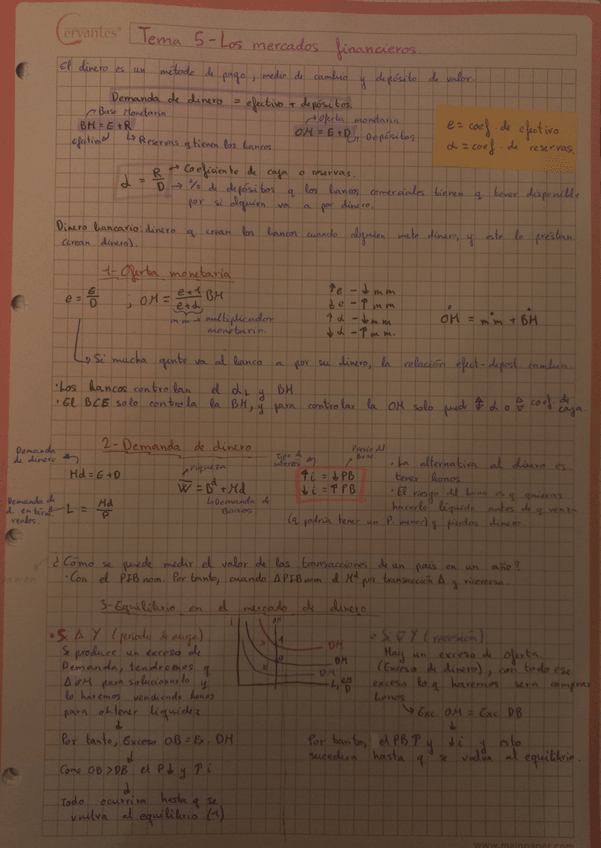 Cervantes
Tema 5 - Los mercados financieros
El dinero es un método de pago, medio de cambio y depósito de valor.
Demanda de dinero = efectivo + depósitos.
Base Monetaria
BM = E + R
Efectivo
Reservas q tienen los bancos
oferta monetaria
OM = E + D
Depósitos
e = coef. de efectivo
α = coef. de reservas
α = R/D → Coeficiente de caja o reservas.
→ % de depósitos q los bancos comerciales tienen q tener disponible
por si alguien va a por dinero.
Dinero bancario: dinero q crean los bancos cuando alguien mete dinero, y este lo prestan
(crean dinero).
1- Oferta monetaria
e = E/D ; OM = e+1/e+α BM
mm → multiplicador
monetario.
↑e - ↓mm
↓e - ↑mm
↑α - ↓mm
↓α - ↑mm.
OM = mm + BM
Si mucha gente va al banco a por su dinero, la relación efect-deposit cambia.
· Los bancos controlan el α y BM
· El BCE solo controla la BM, y para controlar la OM solo coef de
caja
2- Demanda de dinero
Demanda
de dinero
Md = E + D
Demanda de
d. en térm.
reales.
L = Md/P
riqueza
W = Dd + Md
Demanda de
Bonos
Tipo de
interés
Precio del
Bono
↑i = ↓PB
↓i = ↑PB
· La alternativa al dinero es
tener bonos
· El riesgo del bono es q quieras
hacerlo líquido antes de q venza
(q podría tener un P. menor) y pierdas dinero
¿Cómo se puede medir el valor de las transacciones de un país en un año?
· Con el PIB nom. Por tanto, cuando ΔPIB nom. el Md por transacción Δ y viceversa.
3- Equilibrio en el mercado de dinero
· Si Δ Y (periodo de auge)
Se produce un exceso de
Demanda, tendremos q
Δ OM para solucionarlo y
lo haremos vendiendo bonos
para obtener liquidez
↓
Por tanto, Exceso OB = Ex. DM
↓
Como OB > DB el P↓ y ↑i
↓
Todo ocurrirá hasta q se
vuelva al equilibrio
i
OM
DM
DM
DM
· Si ∇ Y (recesión)
Hay un exceso de oferta
(Exceso de dinero), con todo ese
exceso lo q haremos será comprar
bonos
→ Exc. OM = Exc. DB
↓
Por tanto, el PB↑ y ↓i y esto
sucederá hasta q se vuelva al equilibrio.
www.mainpaper.com